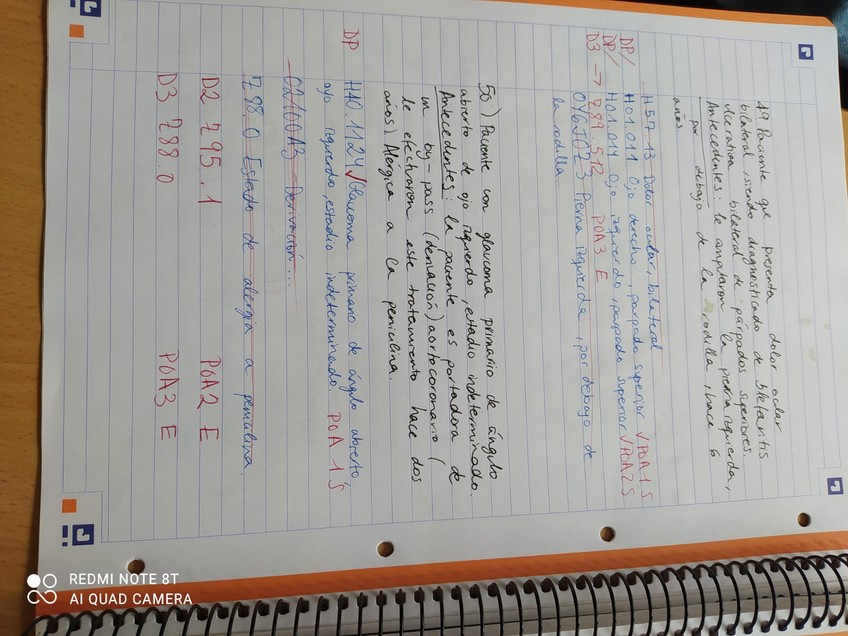 49 Paciente que presenta dolor ocular
bilateral, siendo diagnosticado de blefaritis
ulcerativa bilateral de párpados superiores.
Antecedentes: le amputaron la pierna izquierda,
por debajo de la rodilla, hace 6
años
H57.13 Dolor ocular, bilateral
DP/ H01.011 Ojo derecho, parpado superior √ POA1 S
DP/ H01.014 Ojo izquierdo, parpado superior √ POA2 S
D3 → Z89.512 POA3 E
0Y6J0Z3 Pierna izquierda, por debajo de
la rodilla.
50) Paciente con glaucoma primario de ángulo
abierto de ojo izquierdo, estadio indeterminado.
Antecedentes: la paciente es portadora de
un by-pass (derivación) aortocoronario (
le efectuaron este tratamiento hace dos
años). Alérgica a la penicilina.
DP H40.1124 √ Glaucoma primario de ángulo abierto,
ojo izquierdo, estadio indeterminado. POA 1 S
02100A3 - Derivación...
Z88.0 Estado de alergia a penicilina
D2 Z95.1 POA2 E
D3 Z88.0 POA3 E
REDMI NOTE 8T
AI QUAD CAMERA